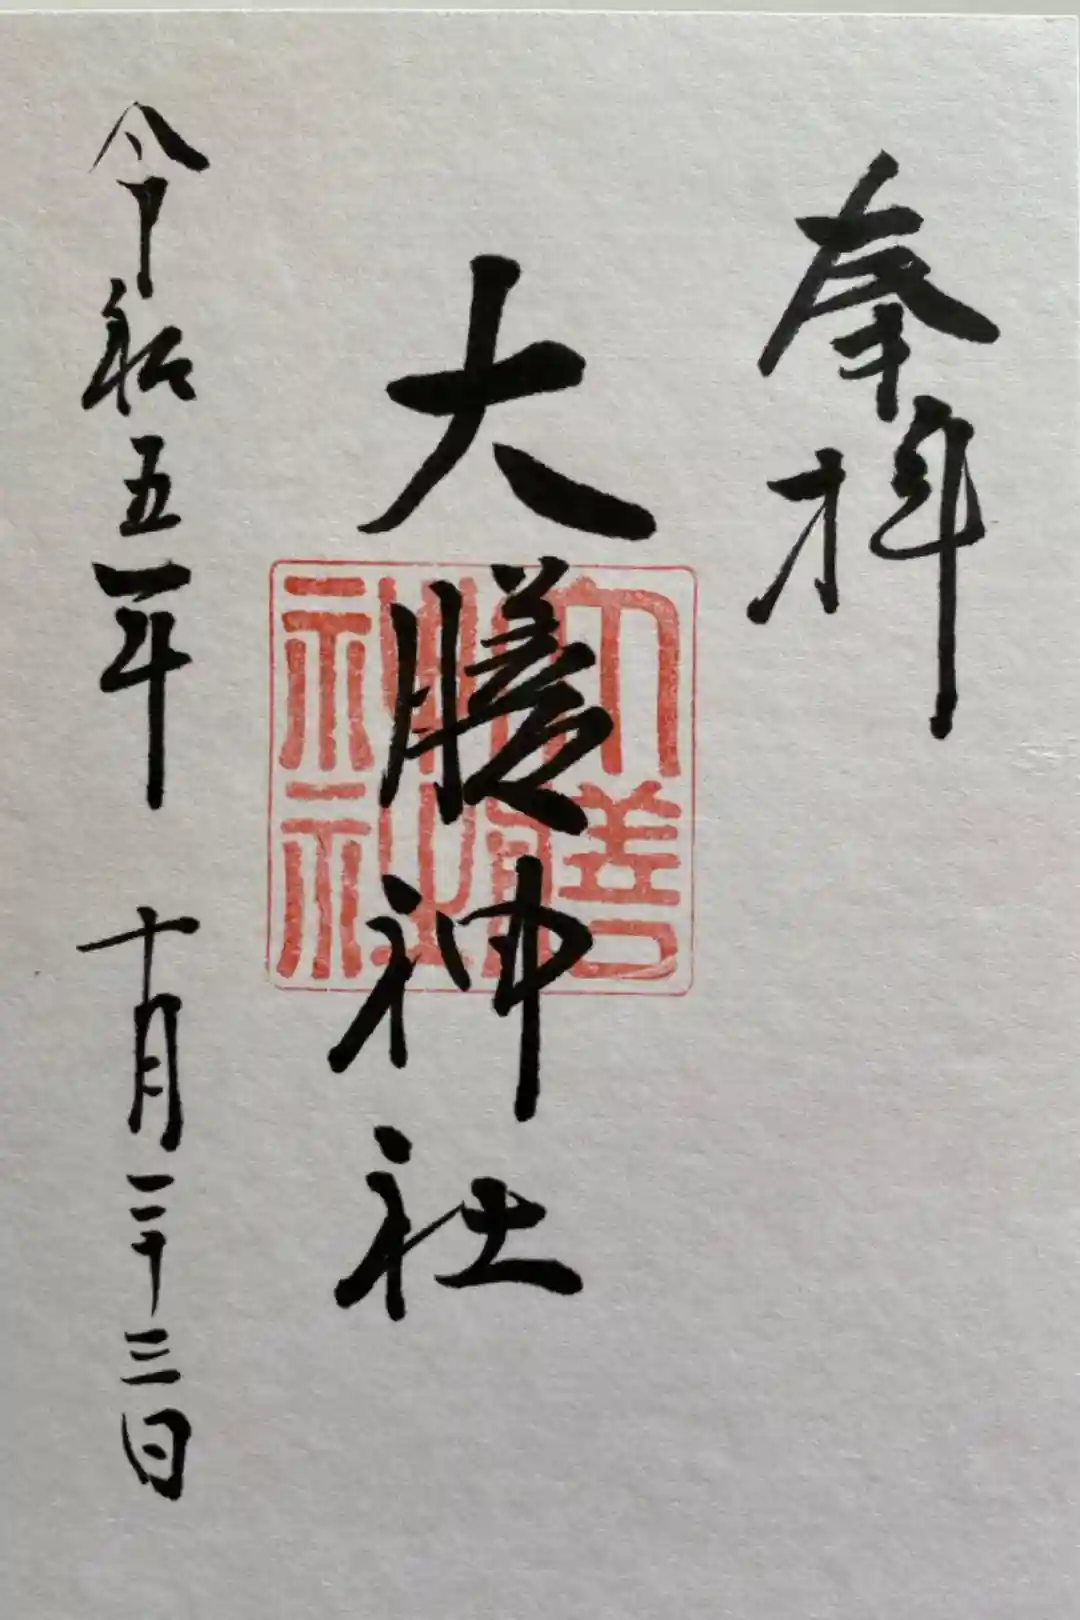 奉拝
大膳神社
令和五年 十月二十三日
大膳
神社